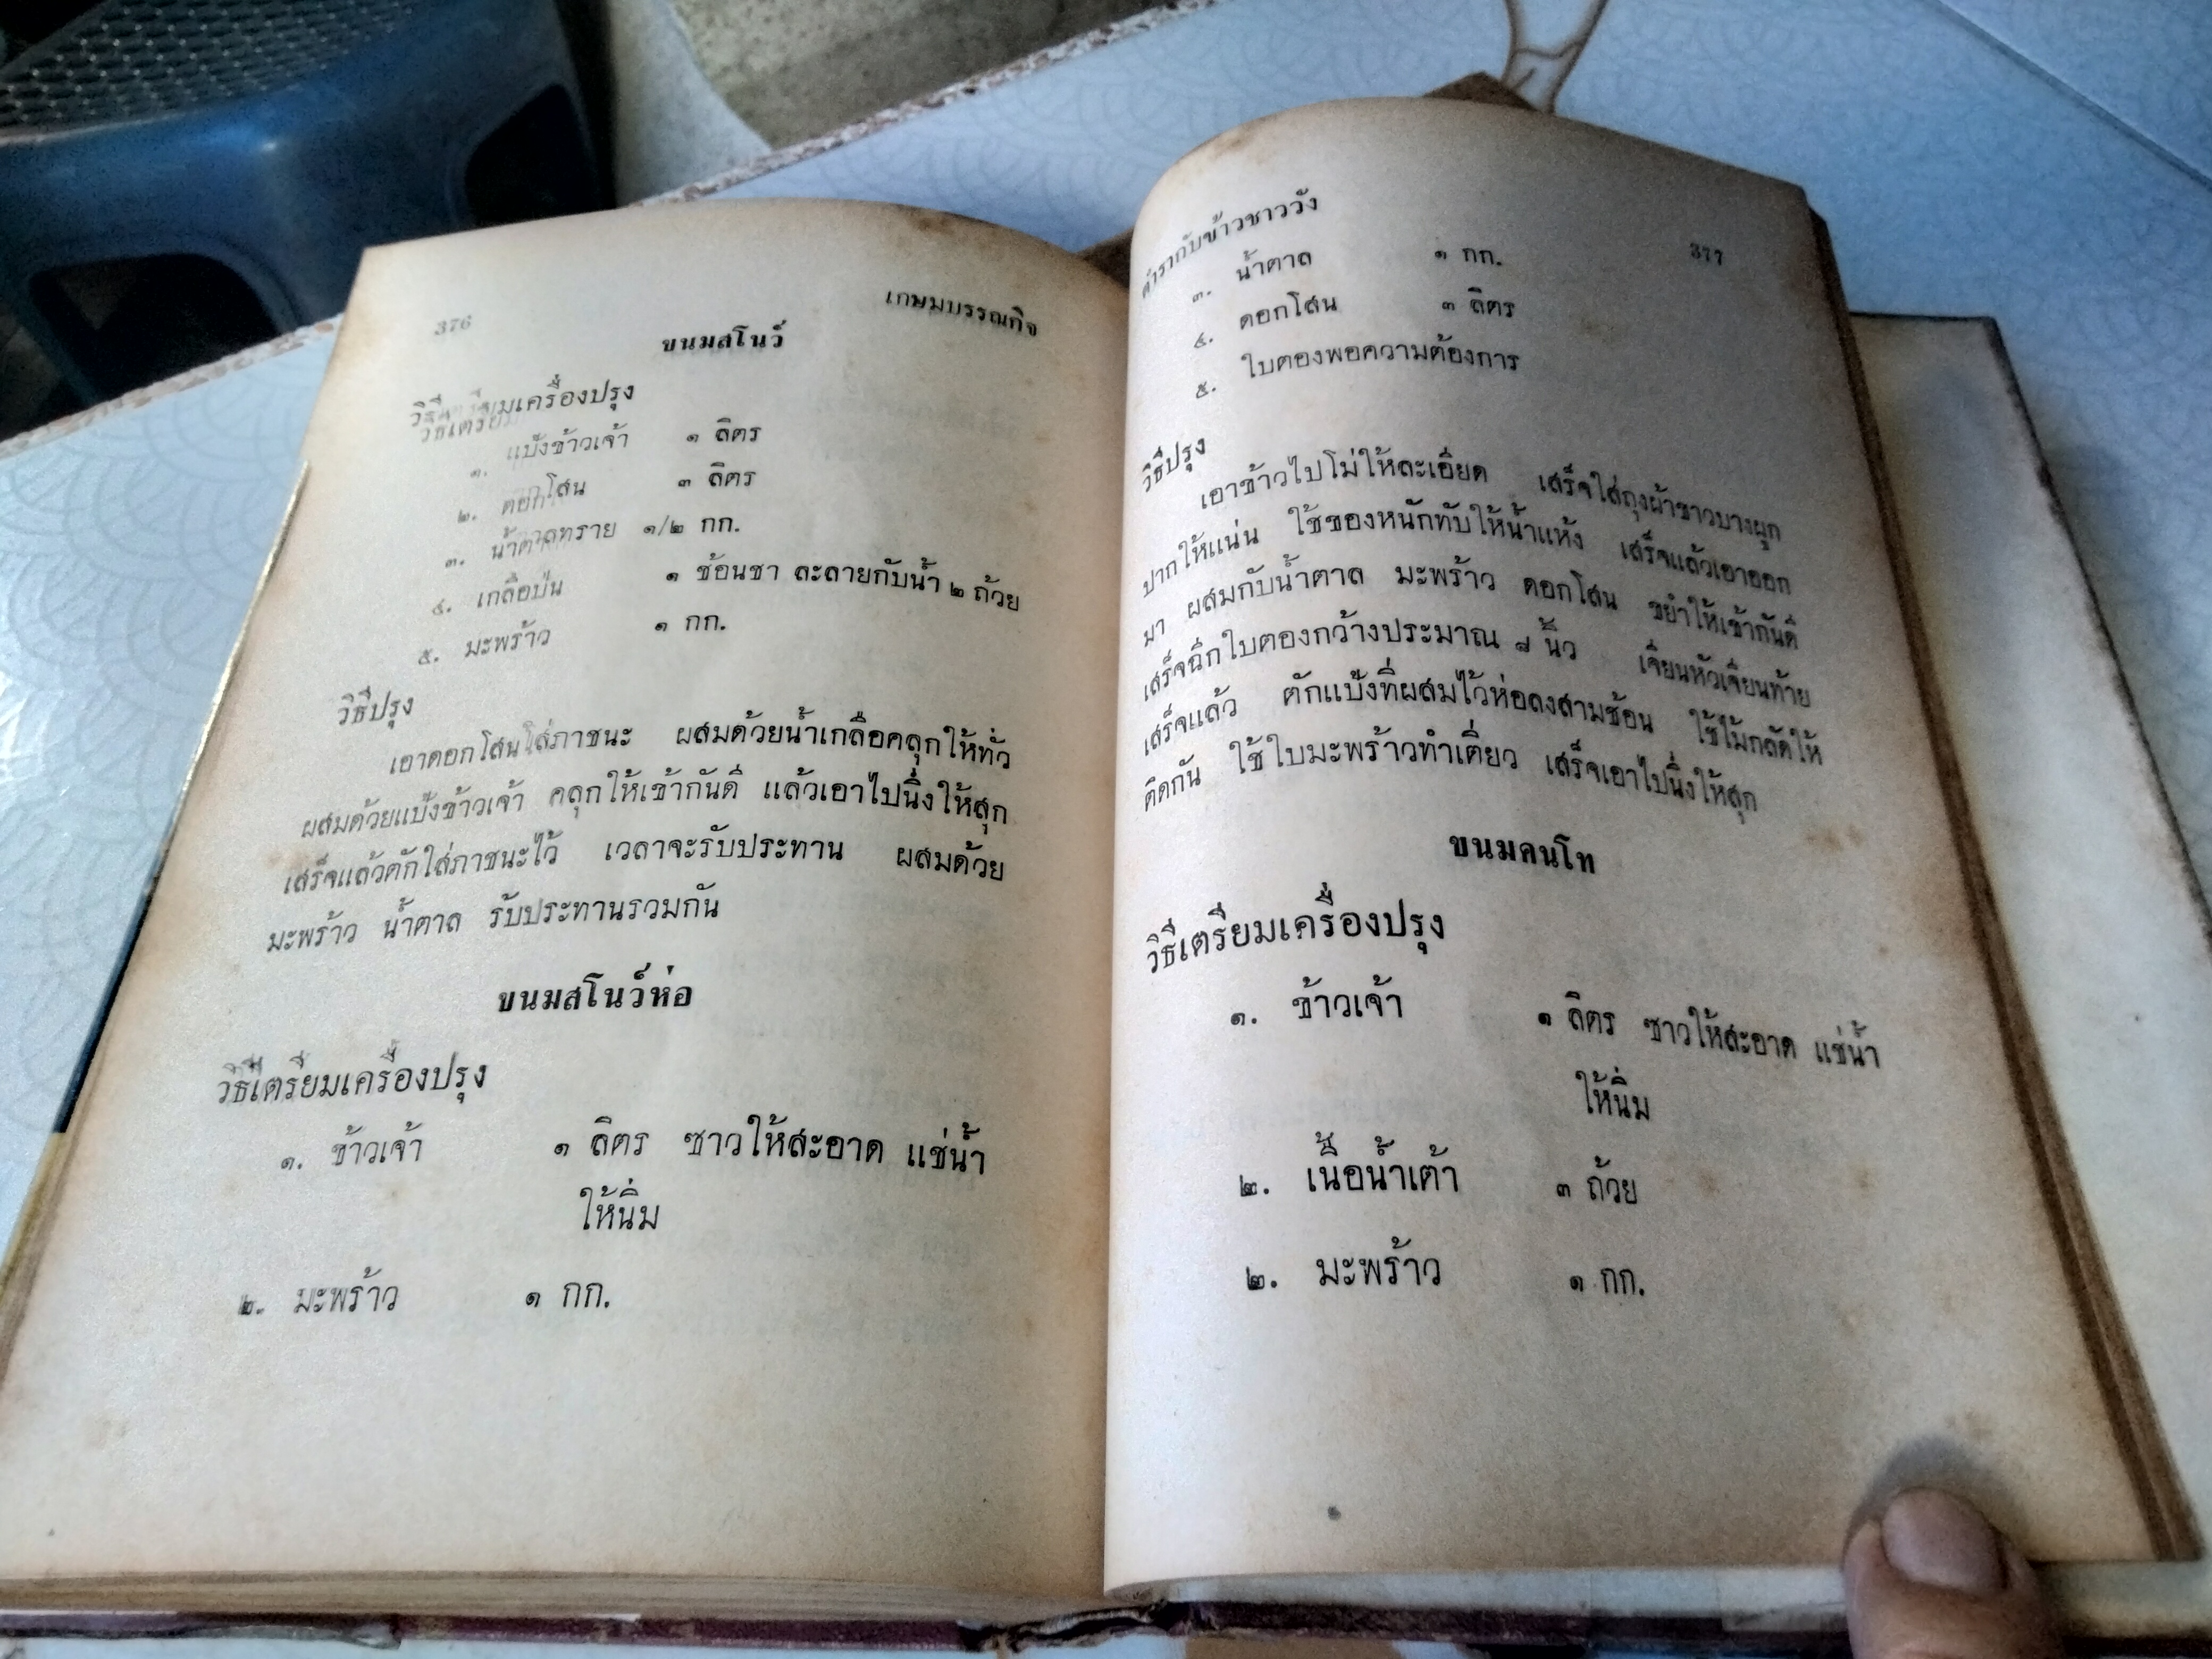 376
เกษมบรรณกิจ
ขนมสโนว์
วิธีเตรียมเครื่องปรุง
๑. แป้งข้าวเจ้า ๑ ลิตร
๒. ดอกโสน ๓ ลิตร
๓. น้ำตาลทราย ๑/๒ กก.
๔. เกลือป่น ๑ ช้อนชา ละลายกับน้ำ ๒ ถ้วย
๕. มะพร้าว ๑ กก.
วิธีปรุง
เอาดอกโสนใส่ภาชนะ ผสมด้วยน้ำเกลือคลุกให้ทั่ว
ผสมด้วยแป้งข้าวเจ้า คลุกให้เข้ากันดี แล้วเอาไปนึ่งให้สุก
เสร็จแล้วตักใส่ภาชนะไว้ เวลาจะรับประทาน ผสมด้วย
มะพร้าว น้ำตาล รับประทานรวมกัน
ขนมสโนว์ห่อ
วิธีเตรียมเครื่องปรุง
๑. ข้าวเจ้า ๑ ลิตร ซาวให้สะอาด แช่น้ำ
ให้นิ่ม
๒. มะพร้าว ๑ กก.
ตำรากับข้าวชาววัง
377
๓. น้ำตาล ๑ กก.
๔. ดอกโสน ๓ ลิตร
๕. ใบตองพอความต้องการ
วิธีปรุง
เอาข้าวไปโม่ให้ละเอียด เสร็จใส่ถุงผ้าขาวบางผูก
ปากให้แน่น ใช้ของหนักทับให้น้ำแห้ง เสร็จแล้วเอาออก
มา ผสมกับน้ำตาล มะพร้าว ดอกโสน ขยำให้เข้ากันดี
เสร็จฉีกใบตองกว้างประมาณ ๘ นิ้ว เจียนหัวเจียนท้าย
เสร็จแล้ว ตักแป้งที่ผสมไว้ห่อลงสามช้อน ใช้ไม้กลัดให้
ติดกัน ใช้ใบมะพร้าวทำเตี่ยว เสร็จเอาไปนึ่งให้สุก
ขนมคนโท
วิธีเตรียมเครื่องปรุง
๑. ข้าวเจ้า ๑ ลิตร ซาวให้สะอาด แช่น้ำ
ให้นิ่ม
๒. เนื้อน้ำเต้า ๓ ถ้วย
๒. มะพร้าว ๑ กก.